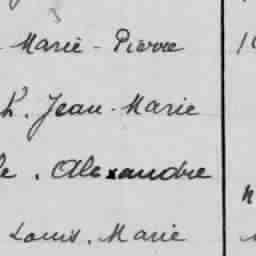 Marie - Pierre
h. Jean - Marie
le . Alexandre
Louis . Marie